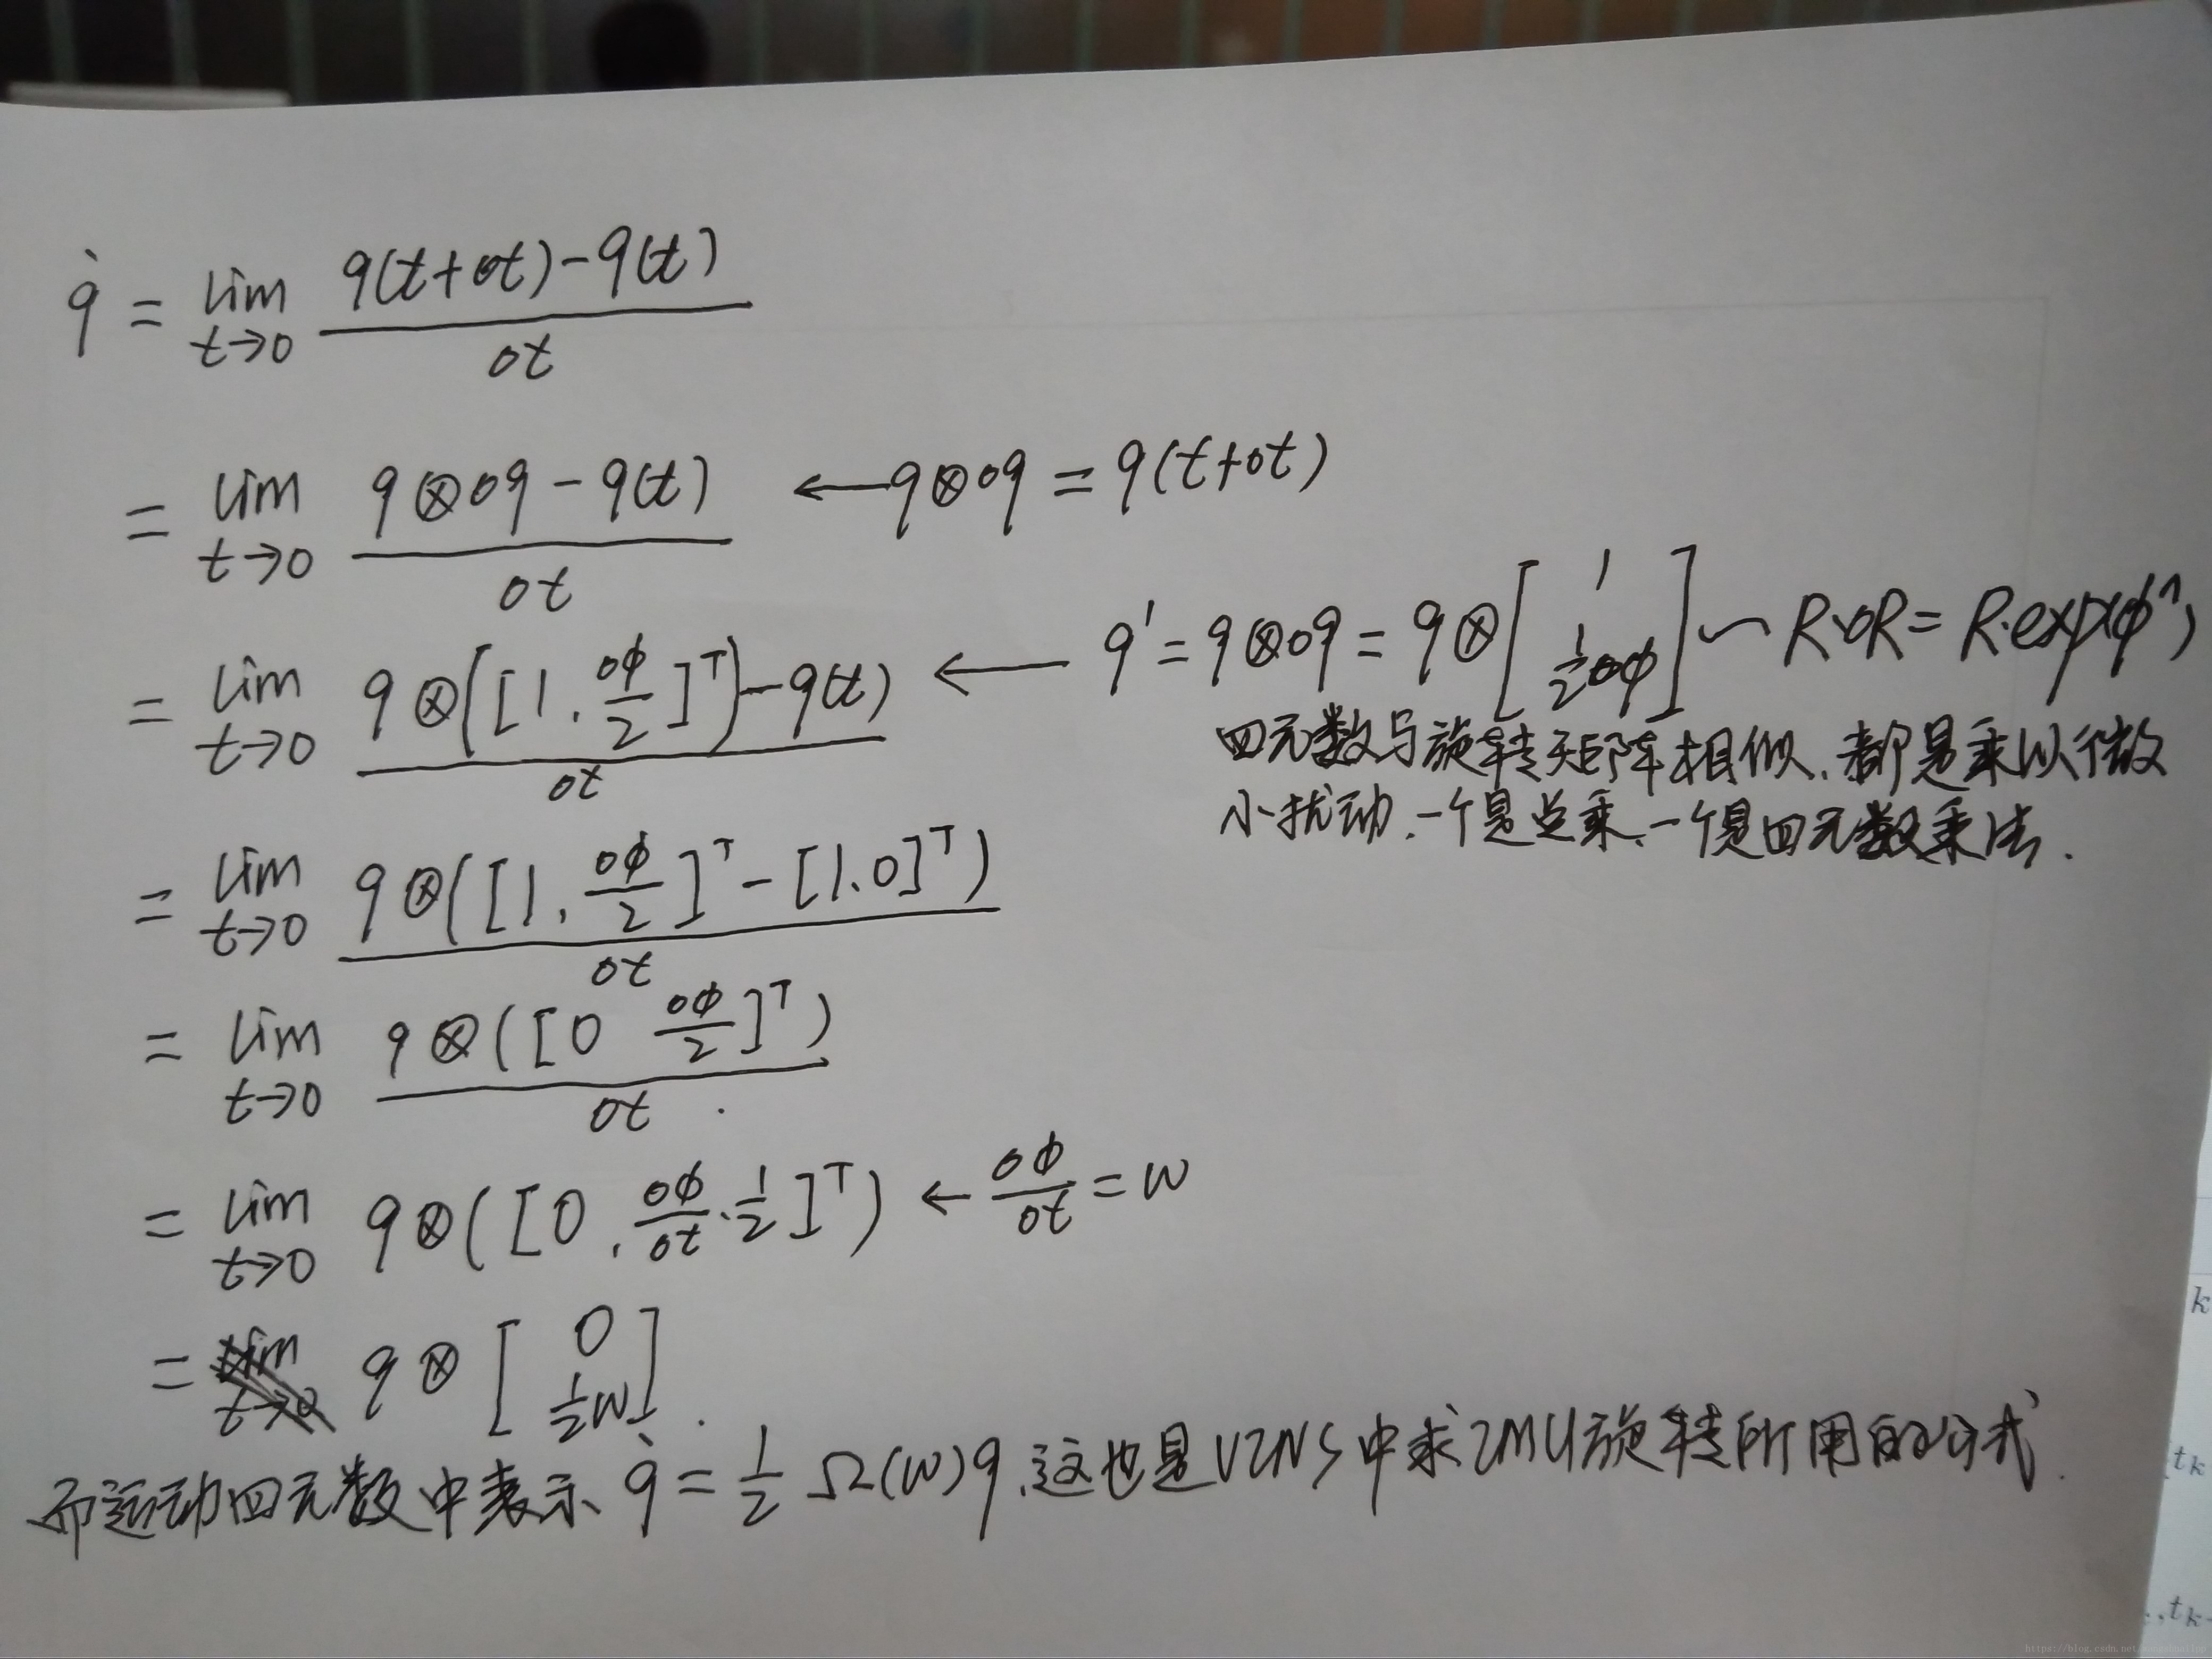 q̇ = lim t→0 (q(t+Δt) − q(t)) / Δt
= lim t→0 (q⊗Δq − q(t)) / Δt ← q⊗Δq = q(t+Δt)
= lim t→0 (q⊗([1, Δφ/2]ᵀ) − q(t)) / Δt ← q' = q⊗Δq = q⊗[1 ½Δφ] ~ R·ΔR = R·exp(φ^)
四元数与旋转矩阵相似,都是乘以个微
小扰动,一个是点乘、一个是四元数乘法.
= lim t→0 q⊗([1, Δφ/2]ᵀ − [1,0]ᵀ) / Δt
= lim t→0 q⊗([0 Δφ/2]ᵀ) / Δt
= lim t→0 q⊗([0, Δφ/Δt·½]ᵀ) ← Δφ/Δt = w
= q⊗[0 ½w].
而运动四元数中表示 q̇ = ½ Ω(w)q,这也是VINS中求IMU旋转所用的公式.
k
tk
.,tk